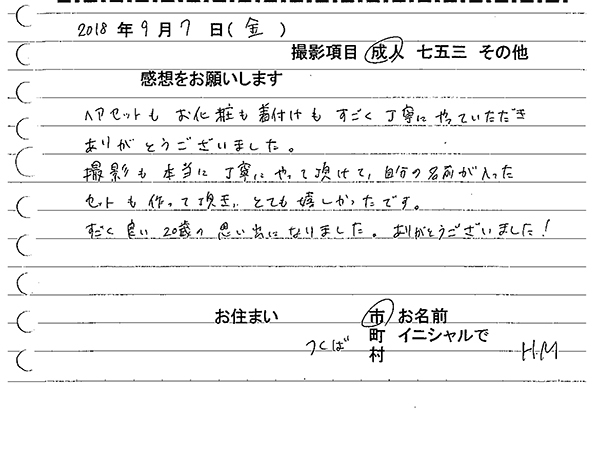 2018年9月7日(金)
撮影項目 成人 七五三 その他
感想をお願いします
ヘアセットも お化粧も着付けも すごく丁寧にやっていただき
ありがとうございました。
撮影も本当に丁寧にやって頂けて、自分の名前が入った
セットも作って頂き、とても嬉しかったです。
すごく良い20歳の思い出になりました。ありがとうございました!
お住まい つくば 市 町 村
お名前 イニシャルで H.M